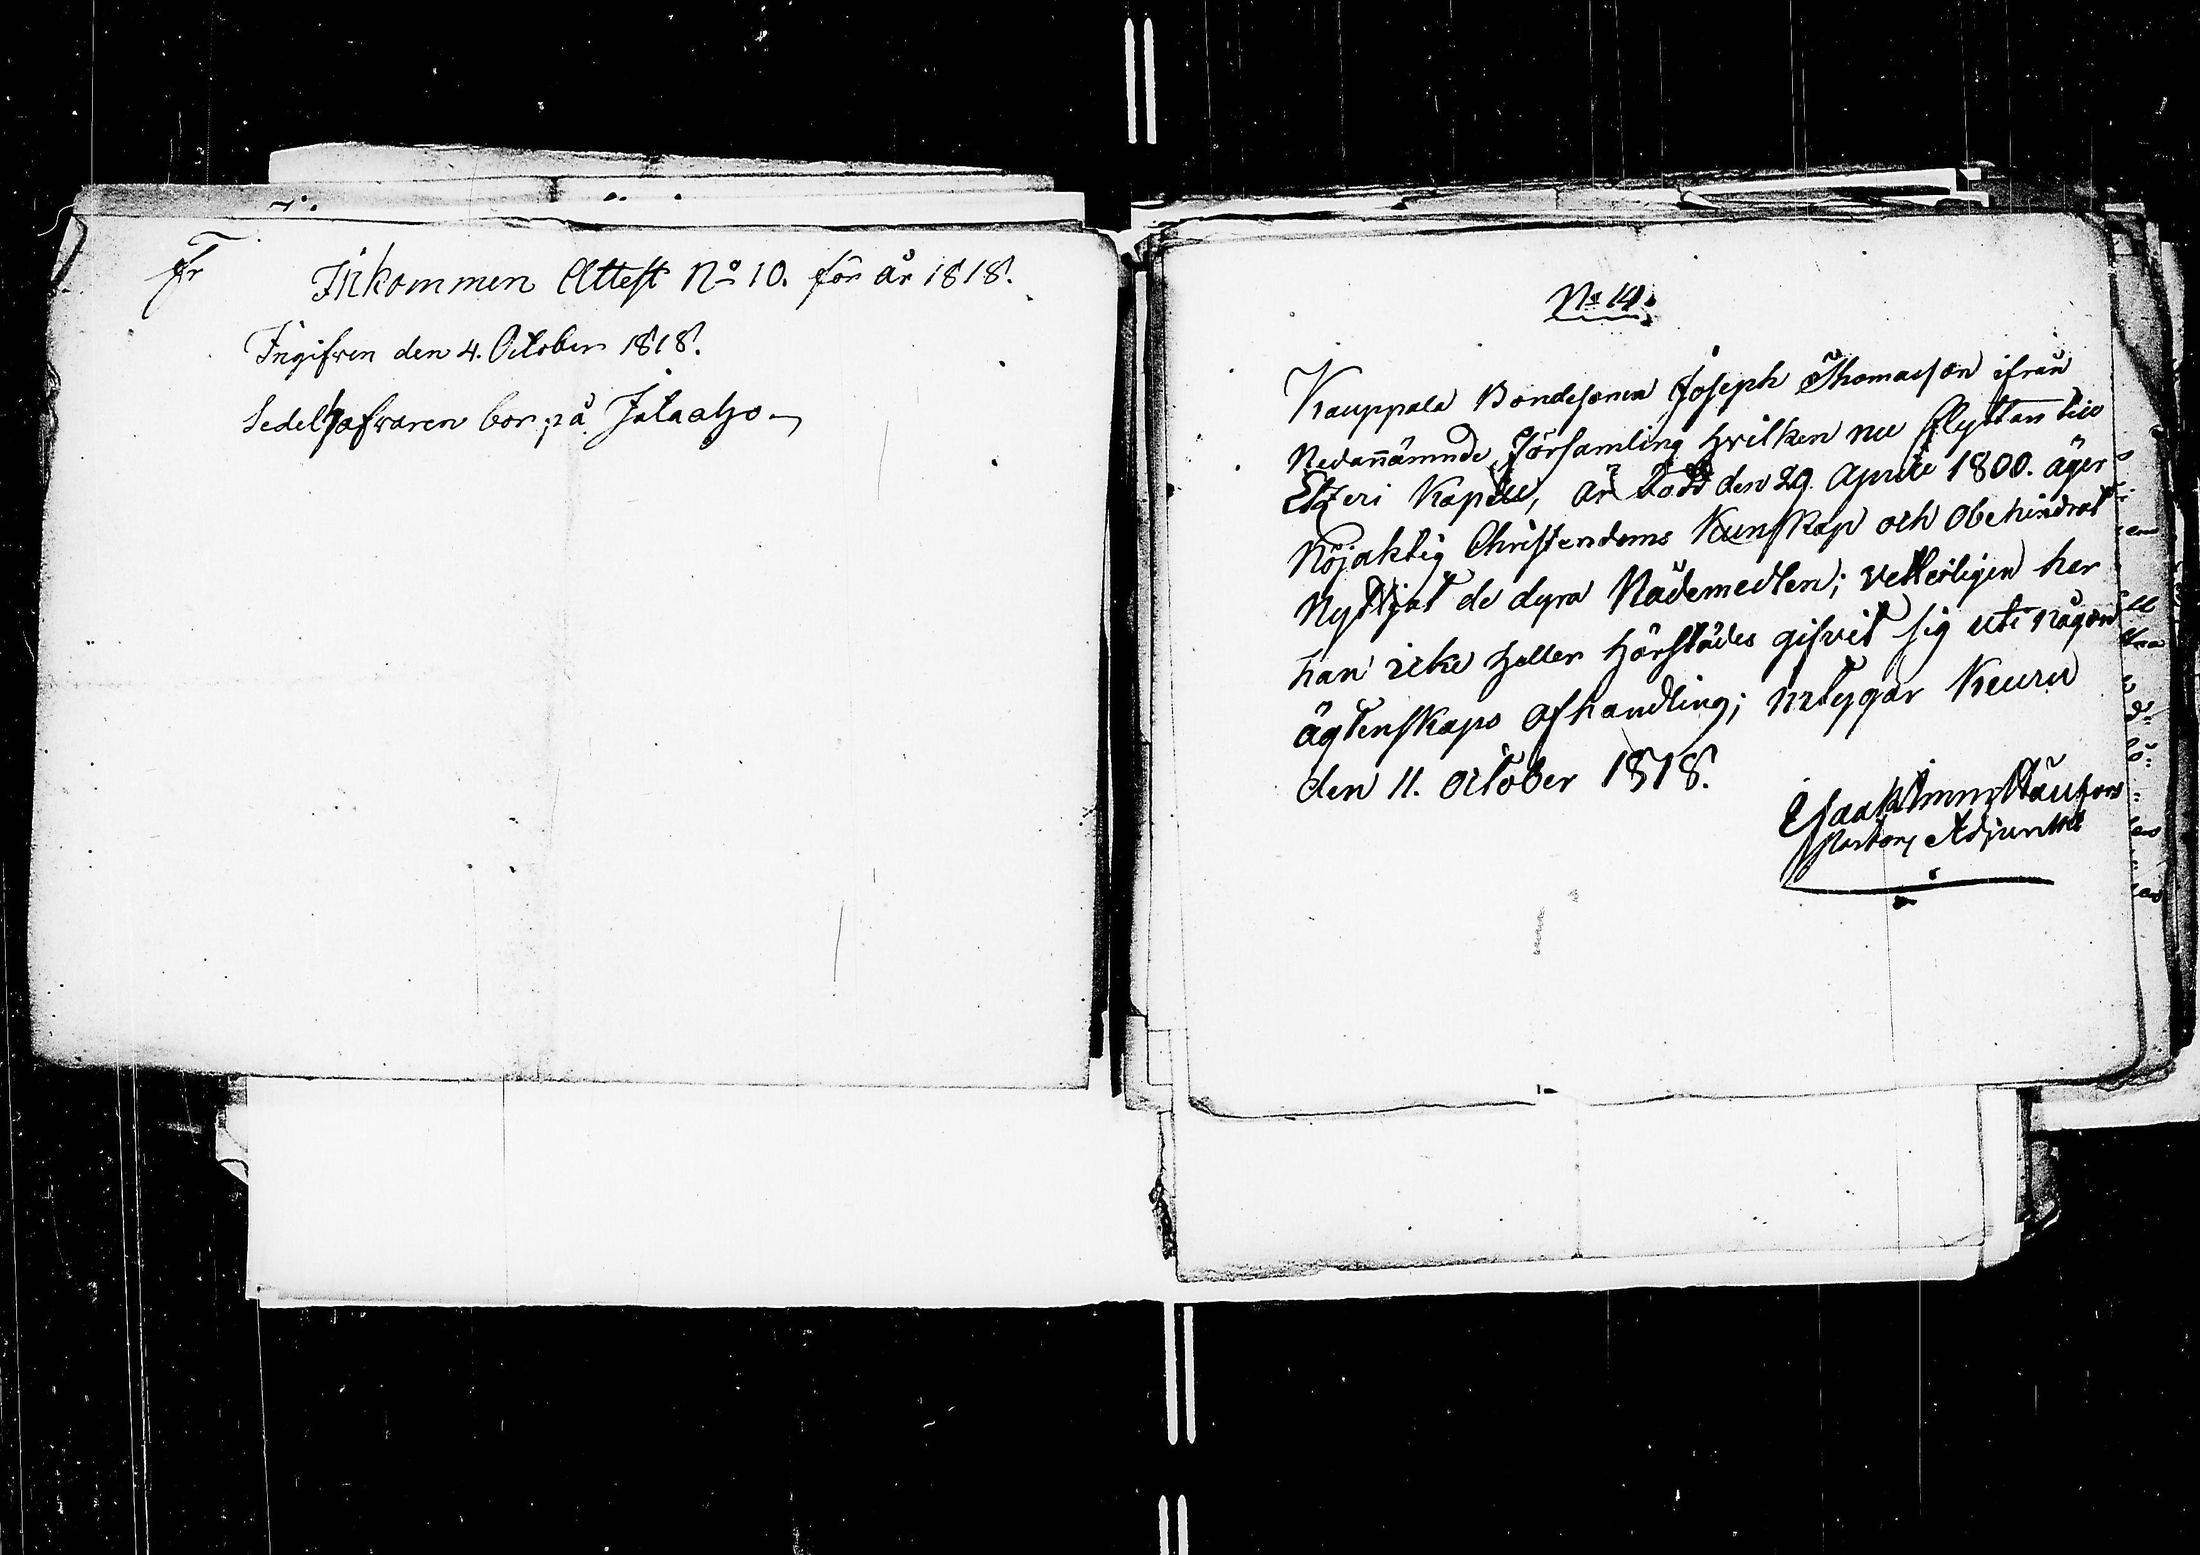 Fr
Inkommen Attest No 10. för år 1818.
Ingifven den 4. October 1818.
Sedelhafvaren bor på Jataaho
No 14.
Kauppala Bondesonen Joseph Thomasson ifrån
Nedannämnde Församling hvilken nu flyttar till
Etzeri Kapell, är född den 29 Aprill 1800. äger
Nöjaktig Christendoms Kunskap och Obehindrat
Nyttjat de dyra Nådemedlen; vetterligen har
han icke heller härstädes gifvit sig uti någon
ägtenskaps afhandling; intygar Keuru
den 11. October 1818.
Isaak Imm:
Pastors Adjunkt